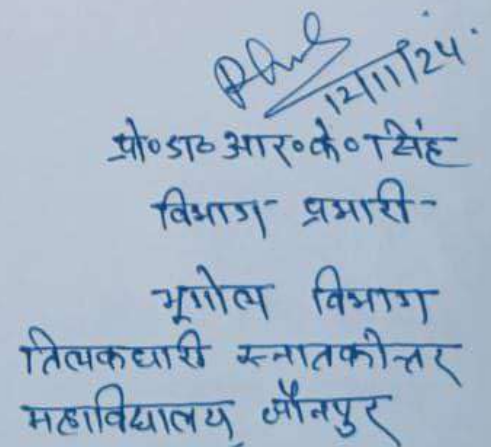 12/11/24
प्रो० डा० आर० के० सिंह
विभाग प्रभारी-
भूगोल विभाग
तिलकधारी स्नातकोत्तर
महाविद्यालय, जौनपुर